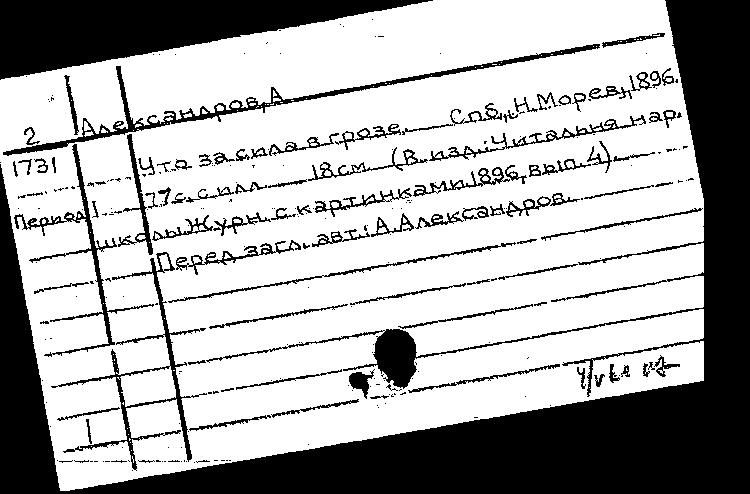 Александров, А
2
1731
Что за сила в грозе. Спб., Н. Морев, 1896.
77 с. с илл. 18 см (В изд.: Читальня нар.
Период 1
школы. Журн. с картинками 1896, вып. 4).
Перед загл. авт.: А. Александров.
1